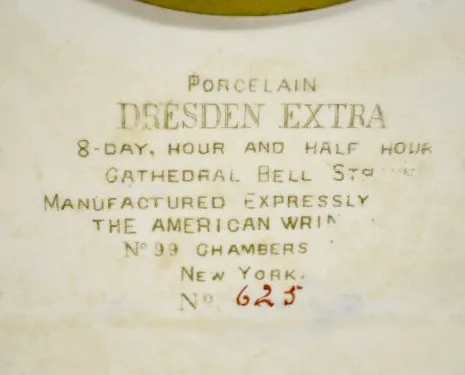 PORCELAIN
DRESDEN EXTRA
8-DAY, HOUR AND HALF HOUR
CATHEDRAL BELL
MANUFACTURED EXPRESSLY
THE AMERICAN WRIN
Nº 99 CHAMBERS
NEW YORK.
Nº 625